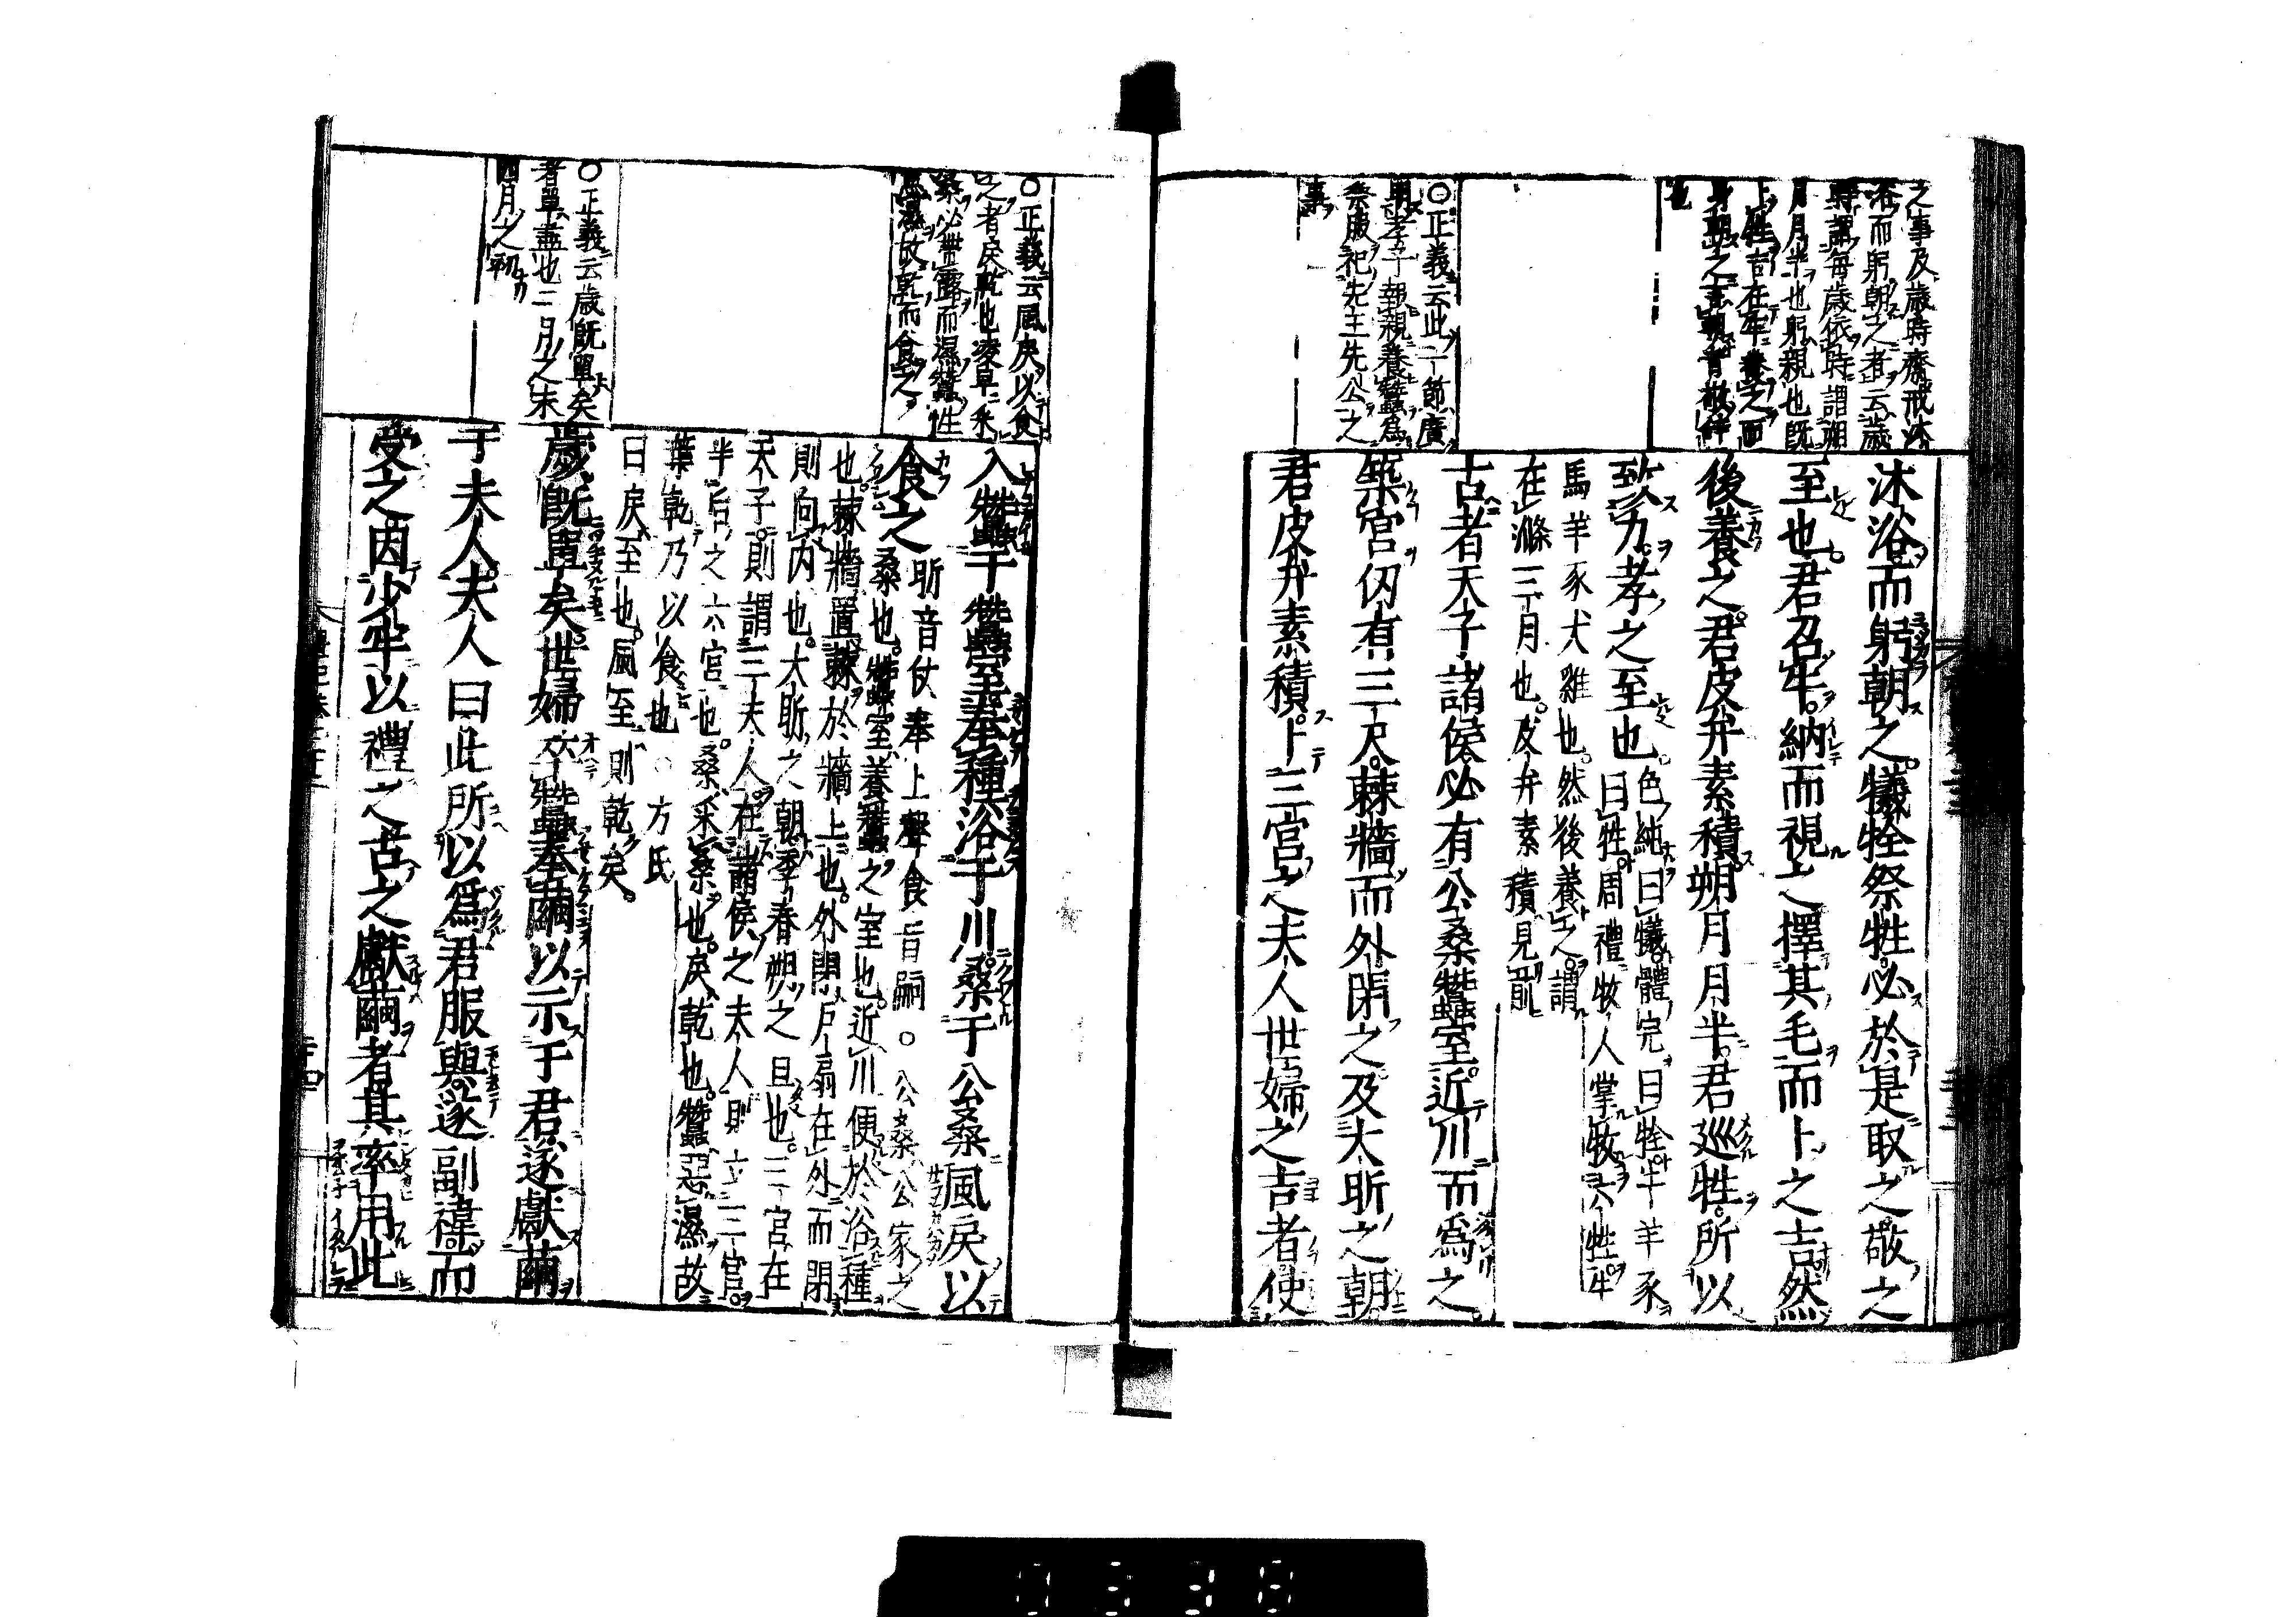 之事及歳時齋戒沐
浴而躬朝之者云歳
時謂毎歳依時謂朔
月月半也躬親也既
卜牲吉在牢養之而
身朝之言朝者敬辭
也
○正義云此一節廣
明孝子報親養蠶爲
祭服祀先王先公之
事
沐浴而躬朝之犧牷祭牲必於是取之敬之
至也君召牛納而視之擇其毛而卜之吉然
後養之君皮弁素積朔月月半君巡牲所以
致力孝之至也
色純曰犧體完曰牷牛羊豕
曰牲周禮牧人掌牧六牲牛
馬羊豕犬雞也然後養之謂
在滌三月也皮弁素積見前
古者天子諸侯必有公桑蠶室近川而爲之
築宮仞有三尺棘牆而外閉之及大昕之朝
君皮弁素積卜三宮之夫人世婦之吉者使
○正義云風戾以食
之者戾乾也凌早采
桑必帶露而濕蠶性
惡濕故乾而食之
○正義云歳既單矣
者單盡也三月之末
四月之初
入蠶于蠶室奉種浴于川桑于公桑風戾以
食之
昕音忻奉上聲食音嗣○公桑公家之
桑也蠶室養蠶之室也近川便於浴種
也棘牆置棘於牆上也外閉戸扇在外而閉
則向内也大昕之朝季春朔之旦也三宮在
天子則謂三夫人在諸侯之夫人則立三宮
半后之六宮也桑采桑也戾乾也蠶惡濕故
葉乾乃以食也○方氏
曰戾至也風至則乾矣
歳既單矣世婦卒蠶奉繭以示于君遂獻繭
于夫人夫人曰此所以爲君服與遂副褘而
受之因少牢以禮之古之獻繭者其率用此